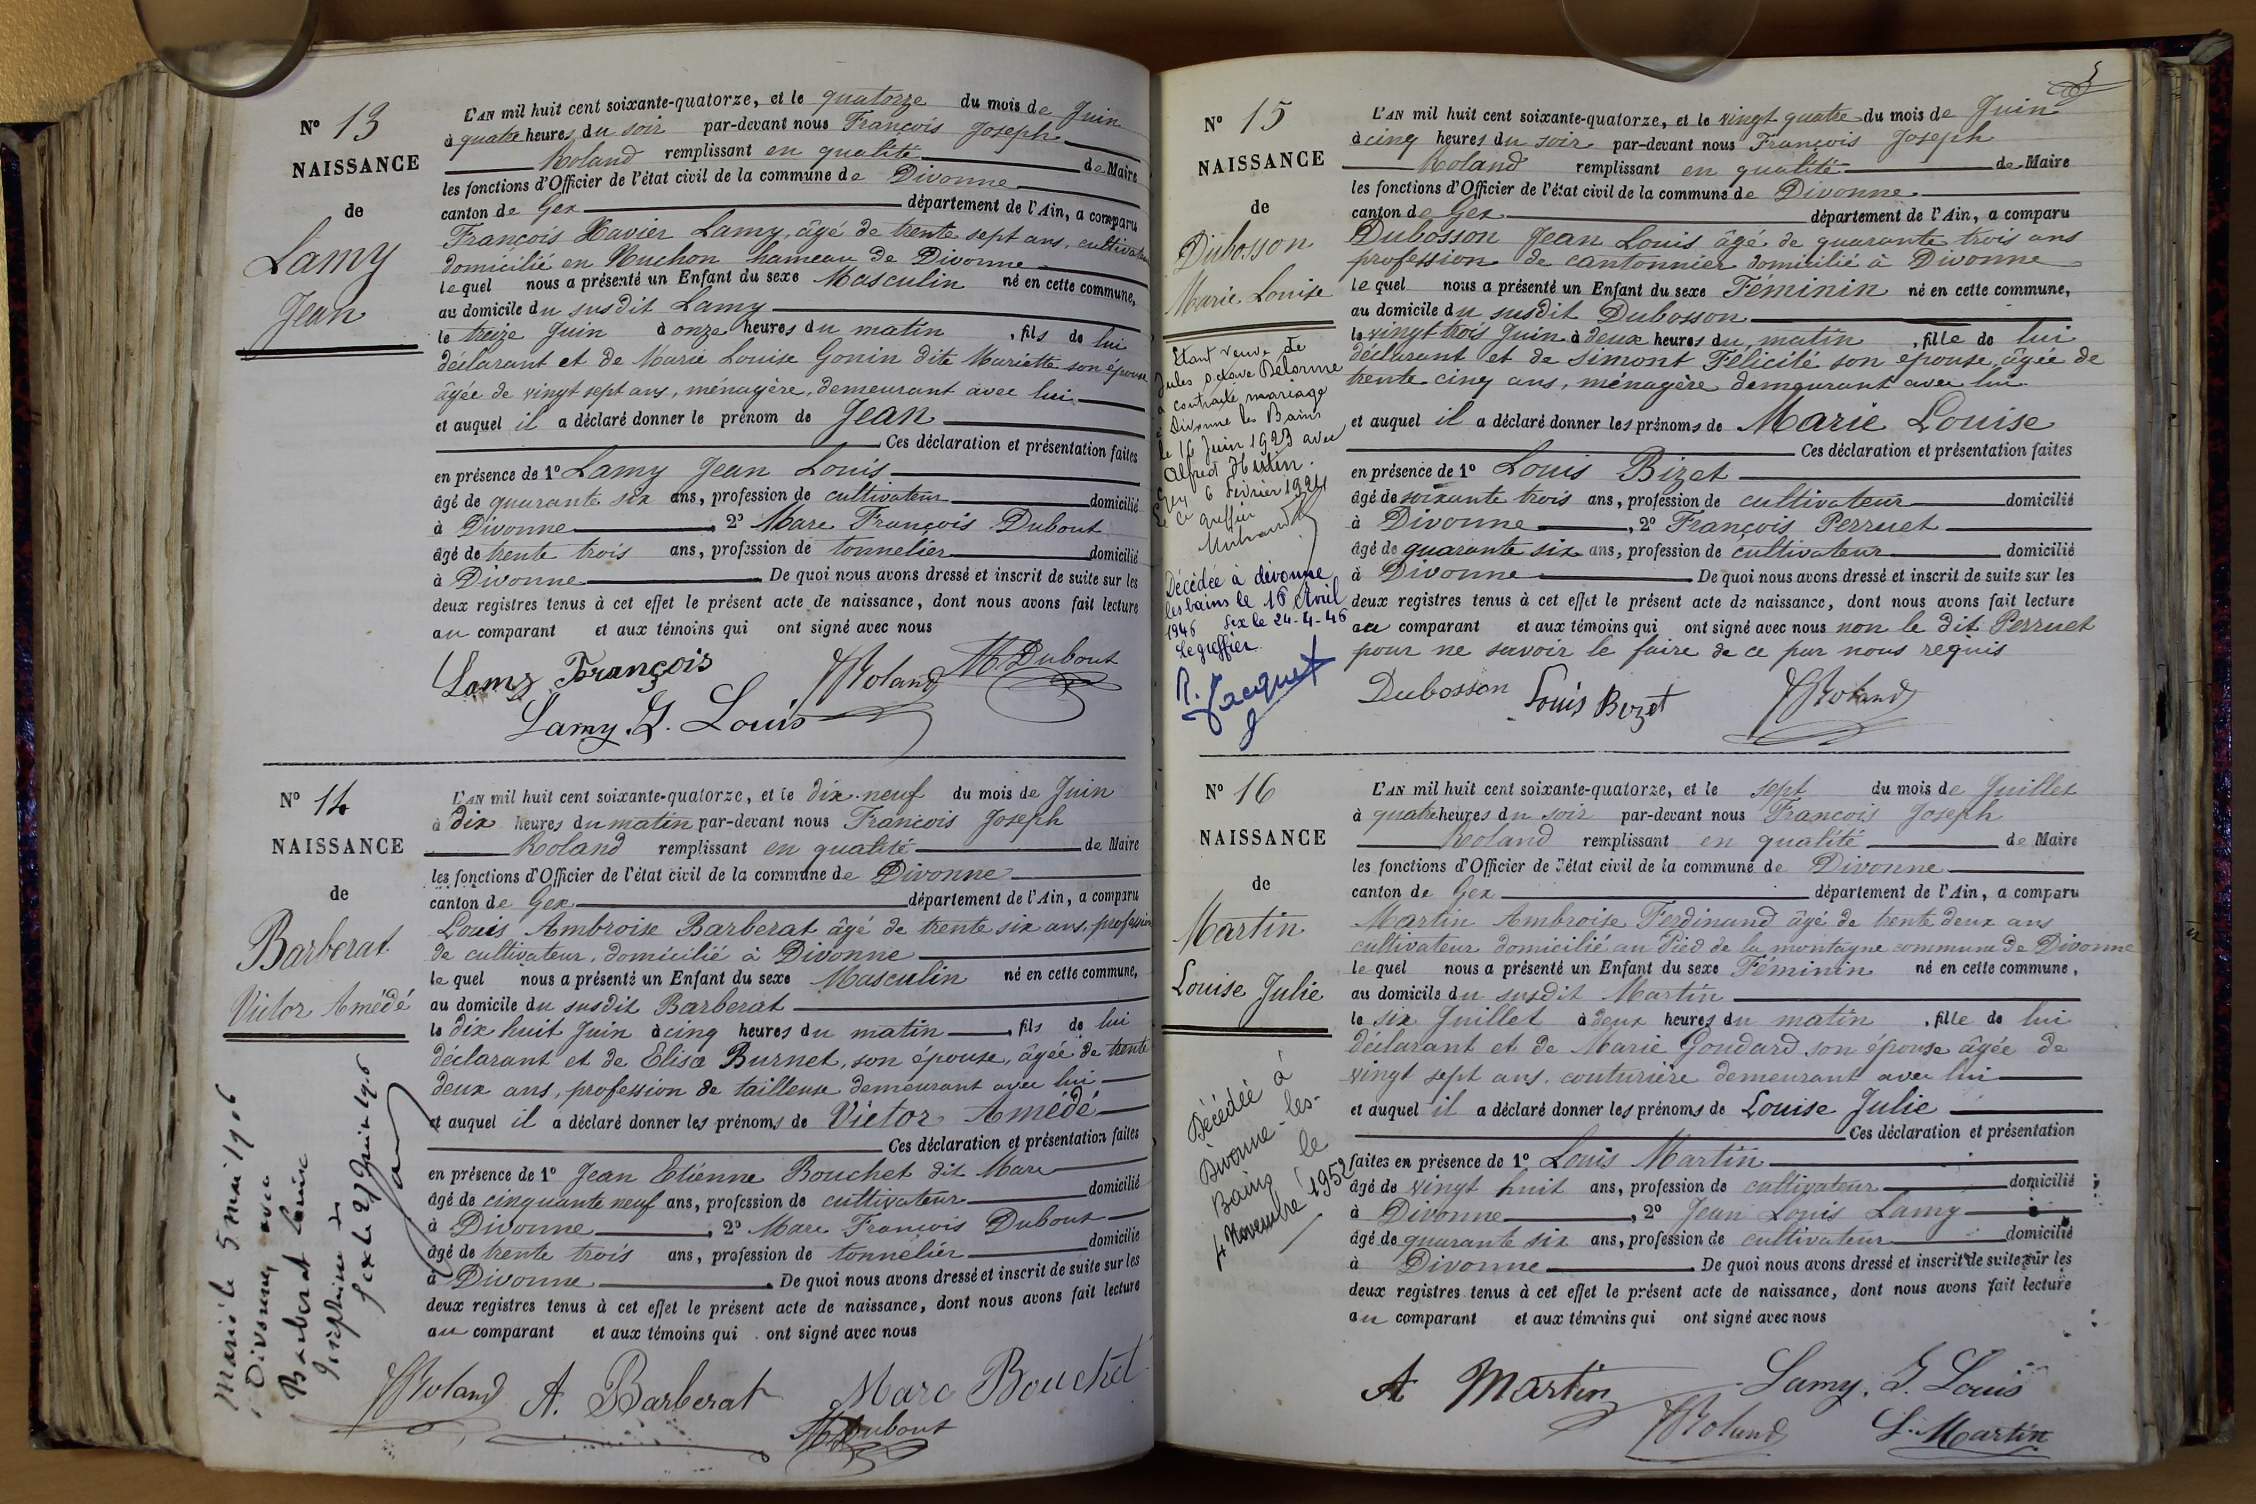 Nº 13
NAISSANCE
de
Lamy
Jean
L'AN mil huit cent soixante-quatorze, et le quatorze du mois de Juin
à quatre heures du soir par-devant nous François Joseph
Roland remplissant en qualité de Maire
les fonctions d'Officier de l'état civil de la commune de Divonne
canton de Gex département de l'Ain, a comparu
François Xavier Lamy, âgé de trente sept ans, cultivateur
domicilié en Muchon hameau de Divonne
lequel nous a présenté un Enfant du sexe Masculin né en cette commune,
au domicile du susdit Lamy
le treize Juin à onze heures du matin, fils de lui
déclarant et de Marie Louise Gonin dite Mariette son épouse
âgée de vingt sept ans, ménagère, demeurant avec lui
et auquel il a déclaré donner le prénom de Jean
Ces déclaration et présentation faites
en présence de 1º Lamy Jean Louis
âgé de quarante six ans, profession de cultivateur domicilié
à Divonne, 2º Marc François Dubout
âgé de trente trois ans, profession de tonnelier domicilié
à Divonne De quoi nous avons dressé et inscrit de suite sur les
deux registres tenus à cet effet le présent acte de naissance, dont nous avons fait lecture
au comparant et aux témoins qui ont signé avec nous
Lamy François JRoland M Dubout
Lamy. J. Louis
Nº 14
NAISSANCE
de
Barberat
Victor Amédé
Marié le 5 mai 1906
à Divonne, avec
Barberat Louise
Joséphine
Gex le
L'AN mil huit cent soixante-quatorze, et le dix-neuf du mois de Juin
à dix heures du matin par-devant nous François Joseph
Roland remplissant en qualité de Maire
les fonctions d'Officier de l'état civil de la commune de Divonne
canton de Gex département de l'Ain, a comparu
Louis Ambroise Barberat âgé de trente six ans, profession
de cultivateur, domicilié à Divonne
lequel nous a présenté un Enfant du sexe Masculin né en cette commune,
au domicile du susdit Barberat
le dix huit Juin à cinq heures du matin, fils de lui
déclarant et de Elisa Burnet, son épouse, âgée de trente
deux ans, profession de tailleuse demeurant avec lui
et auquel il a déclaré donner les prénoms de Victor Amédé
Ces déclaration et présentation faites
en présence de 1º Jean Etienne Bouchet dit Marc
âgé de cinquante neuf ans, profession de cultivateur domicilié
à Divonne, 2º Marc François Dubout
âgé de trente trois ans, profession de tonnelier domicilié
à Divonne. De quoi nous avons dressé et inscrit de suite sur les
deux registres tenus à cet effet le présent acte de naissance, dont nous avons fait lecture
au comparant et aux témoins qui ont signé avec nous
JRoland A. Barberat Marc Bouchet
M Dubout
5
Nº 15
NAISSANCE
de
Dubosson
Marie Louise
Etant veuve de
Jules Octave Delorme
a contracté mariage
à Divonne les Bains
le 16 Juin 1923 avec
Alfred
Gex 6 Février 1924
Le Greffier
Décédée à divonne
les bains le 16 Avril
1946 Gex le 24-4-46
Le greffier
R. Jacquet
L'AN mil huit cent soixante-quatorze, et le vingt quatre du mois de Juin
à cinq heures du soir par-devant nous François Joseph
Roland remplissant en qualité de Maire
les fonctions d'Officier de l'état civil de la commune de Divonne
canton de Gex département de l'Ain, a comparu
Dubosson Jean Louis âgé de quarante trois ans
profession de cantonnier domicilié à Divonne
lequel nous a présenté un Enfant du sexe Féminin né en cette commune,
au domicile du susdit Dubosson
le vingt trois Juin à deux heures du matin, fille de lui
déclarant et de Simont Félicité son épouse, âgée de
trente cinq ans, ménagère demeurant avec lui
et auquel il a déclaré donner les prénoms de Marie Louise
Ces déclaration et présentation faites
en présence de 1º Louis Bizet
âgé de soixante trois ans, profession de cultivateur domicilié
à Divonne, 2º François Perruet
âgé de quarante six ans, profession de cultivateur domicilié
à Divonne. De quoi nous avons dressé et inscrit de suite sur les
deux registres tenus à cet effet le présent acte de naissance, dont nous avons fait lecture
au comparant et aux témoins qui ont signé avec nous non le dit Perruet
pour ne savoir le faire de ce par nous requis
Dubosson Louis Bizet JRoland
Nº 16
NAISSANCE
de
Martin
Louise Julie
Décédée à
Divonne-les-
Bains le
4 Novembre 1952
L'AN mil huit cent soixante-quatorze, et le sept du mois de Juillet
à quatre heures du soir par-devant nous François Joseph
Roland remplissant en qualité de Maire
les fonctions d'Officier de l'état civil de la commune de Divonne
canton de Gex département de l'Ain, a comparu
Martin Ambroise Ferdinand âgé de trente deux ans
cultivateur domicilié au Pied de la montagne commune de Divonne
lequel nous a présenté un Enfant du sexe Féminin né en cette commune,
au domicile du susdit Martin
le six Juillet à deux heures du matin, fille de lui
déclarant et de Marie Goudard son épouse âgée de
vingt sept ans, couturière demeurant avec lui
et auquel il a déclaré donner les prénoms de Louise Julie
Ces déclaration et présentation
faites en présence de 1º Louis Martin
âgé de vingt huit ans, profession de cultivateur domicilié
à Divonne, 2º Jean Louis Lamy
âgé de quarante six ans, profession de cultivateur domicilié
à Divonne. De quoi nous avons dressé et inscrit de suite sur les
deux registres tenus à cet effet le présent acte de naissance, dont nous avons fait lecture
au comparant et aux témoins qui ont signé avec nous
A Martin Lamy. J. Louis
JRoland L. Martin